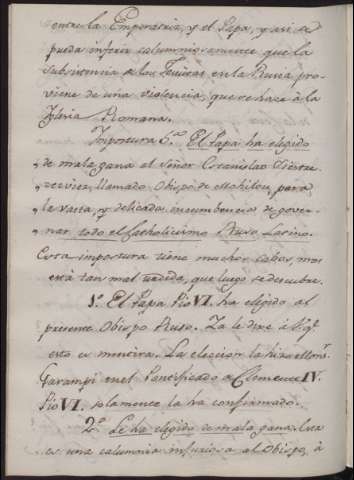 entre la Emperatriz, y el Papa, y asi se
pueda inferir calumniosamente que la
subsistencia de los Jesuitas en la Rusia pro-
viene de una violencia, que se hace à la
Iglesia Romana.
Impostura 6.ª El Papa ha elegido
de mala gana al Señor Estanislao
llamado Obispo de Mohilow, para
la vasta, y delicada incumbencia de gover-
nar todo el Catholicismo Ruso Latino.
Esta impostura tiene muchos cabos, mas
está tan mal que luego se descubre.
1.º El Papa Pio VI. ha elegido al
presente Obispo Ruso. Ya le dixe
esto es mentira. La eleccion la hizo Mons.
Garampi en el Pontificado de Clemente IV.
Pio VI. solamente la ha confirmado.
2.º Le ha elegido de mala gana. Esta
es una calumnia injuriosa al Obispo, à